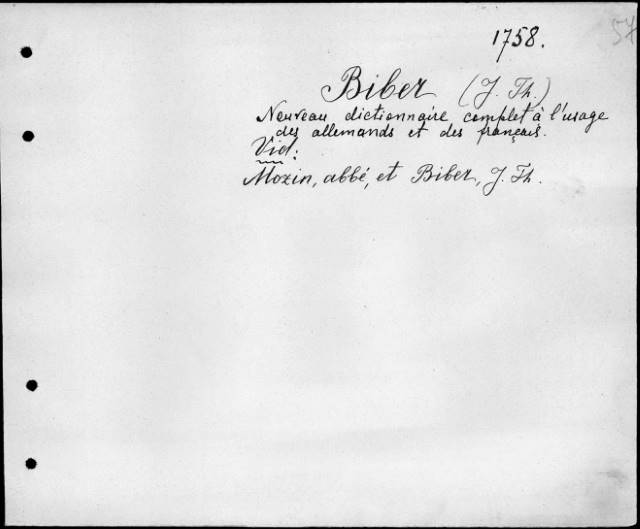 1758.
57
Biber (J. Th.)
Nouveau dictionnaire complet à l'usage
des allemands et des français.
Vid:
Mozin, abbé, et Biber, J. Th.